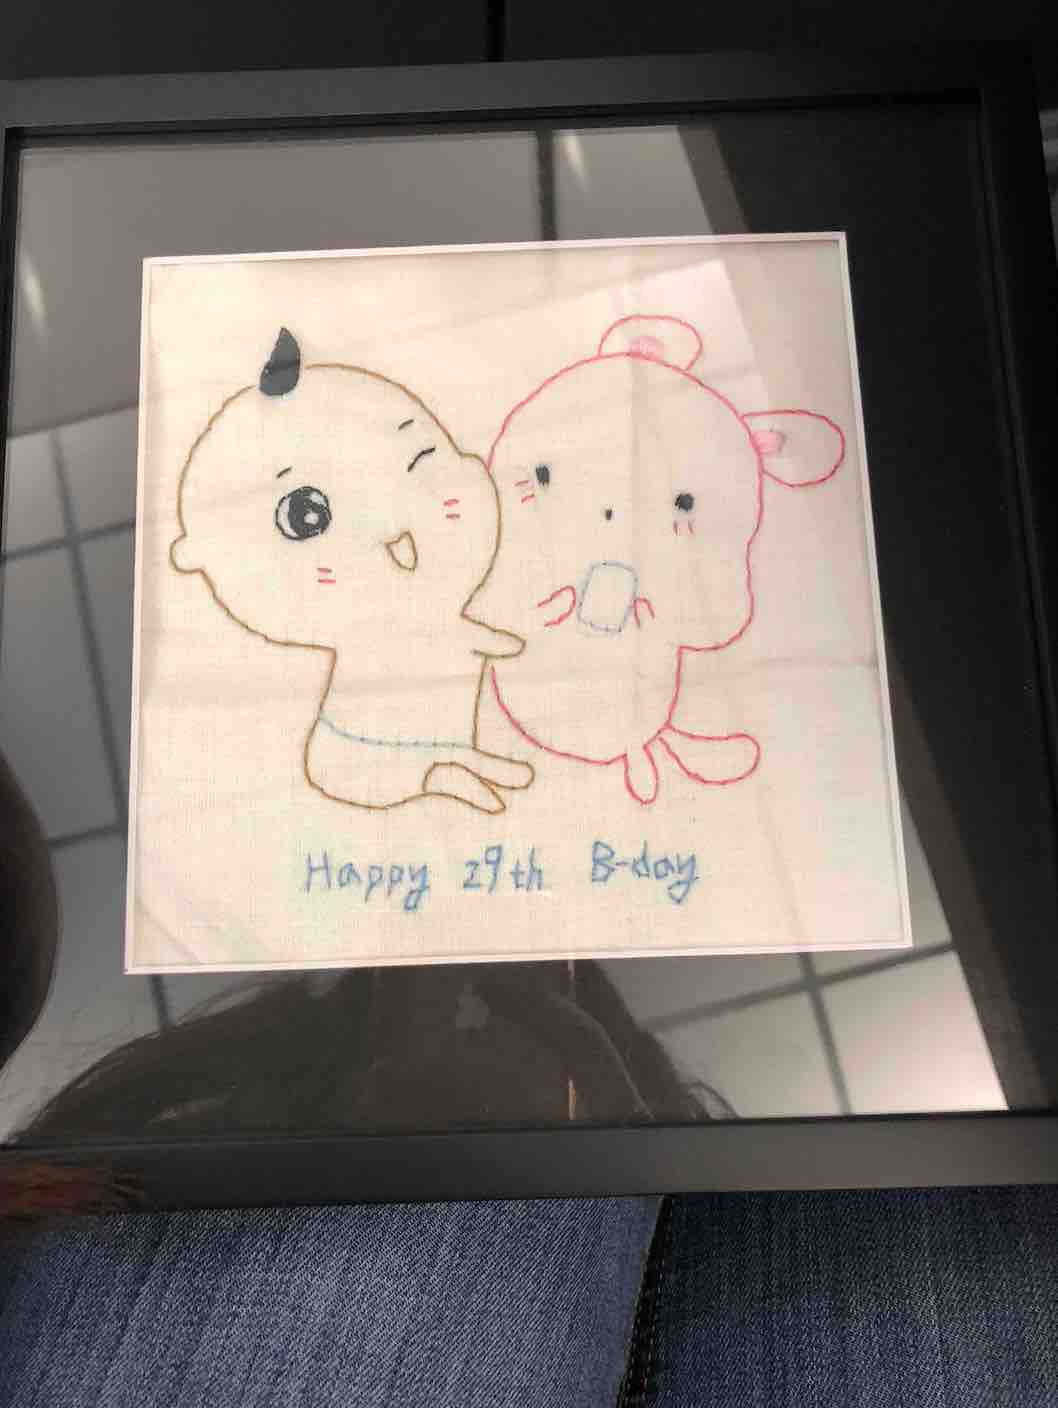 Happy 29th B-day